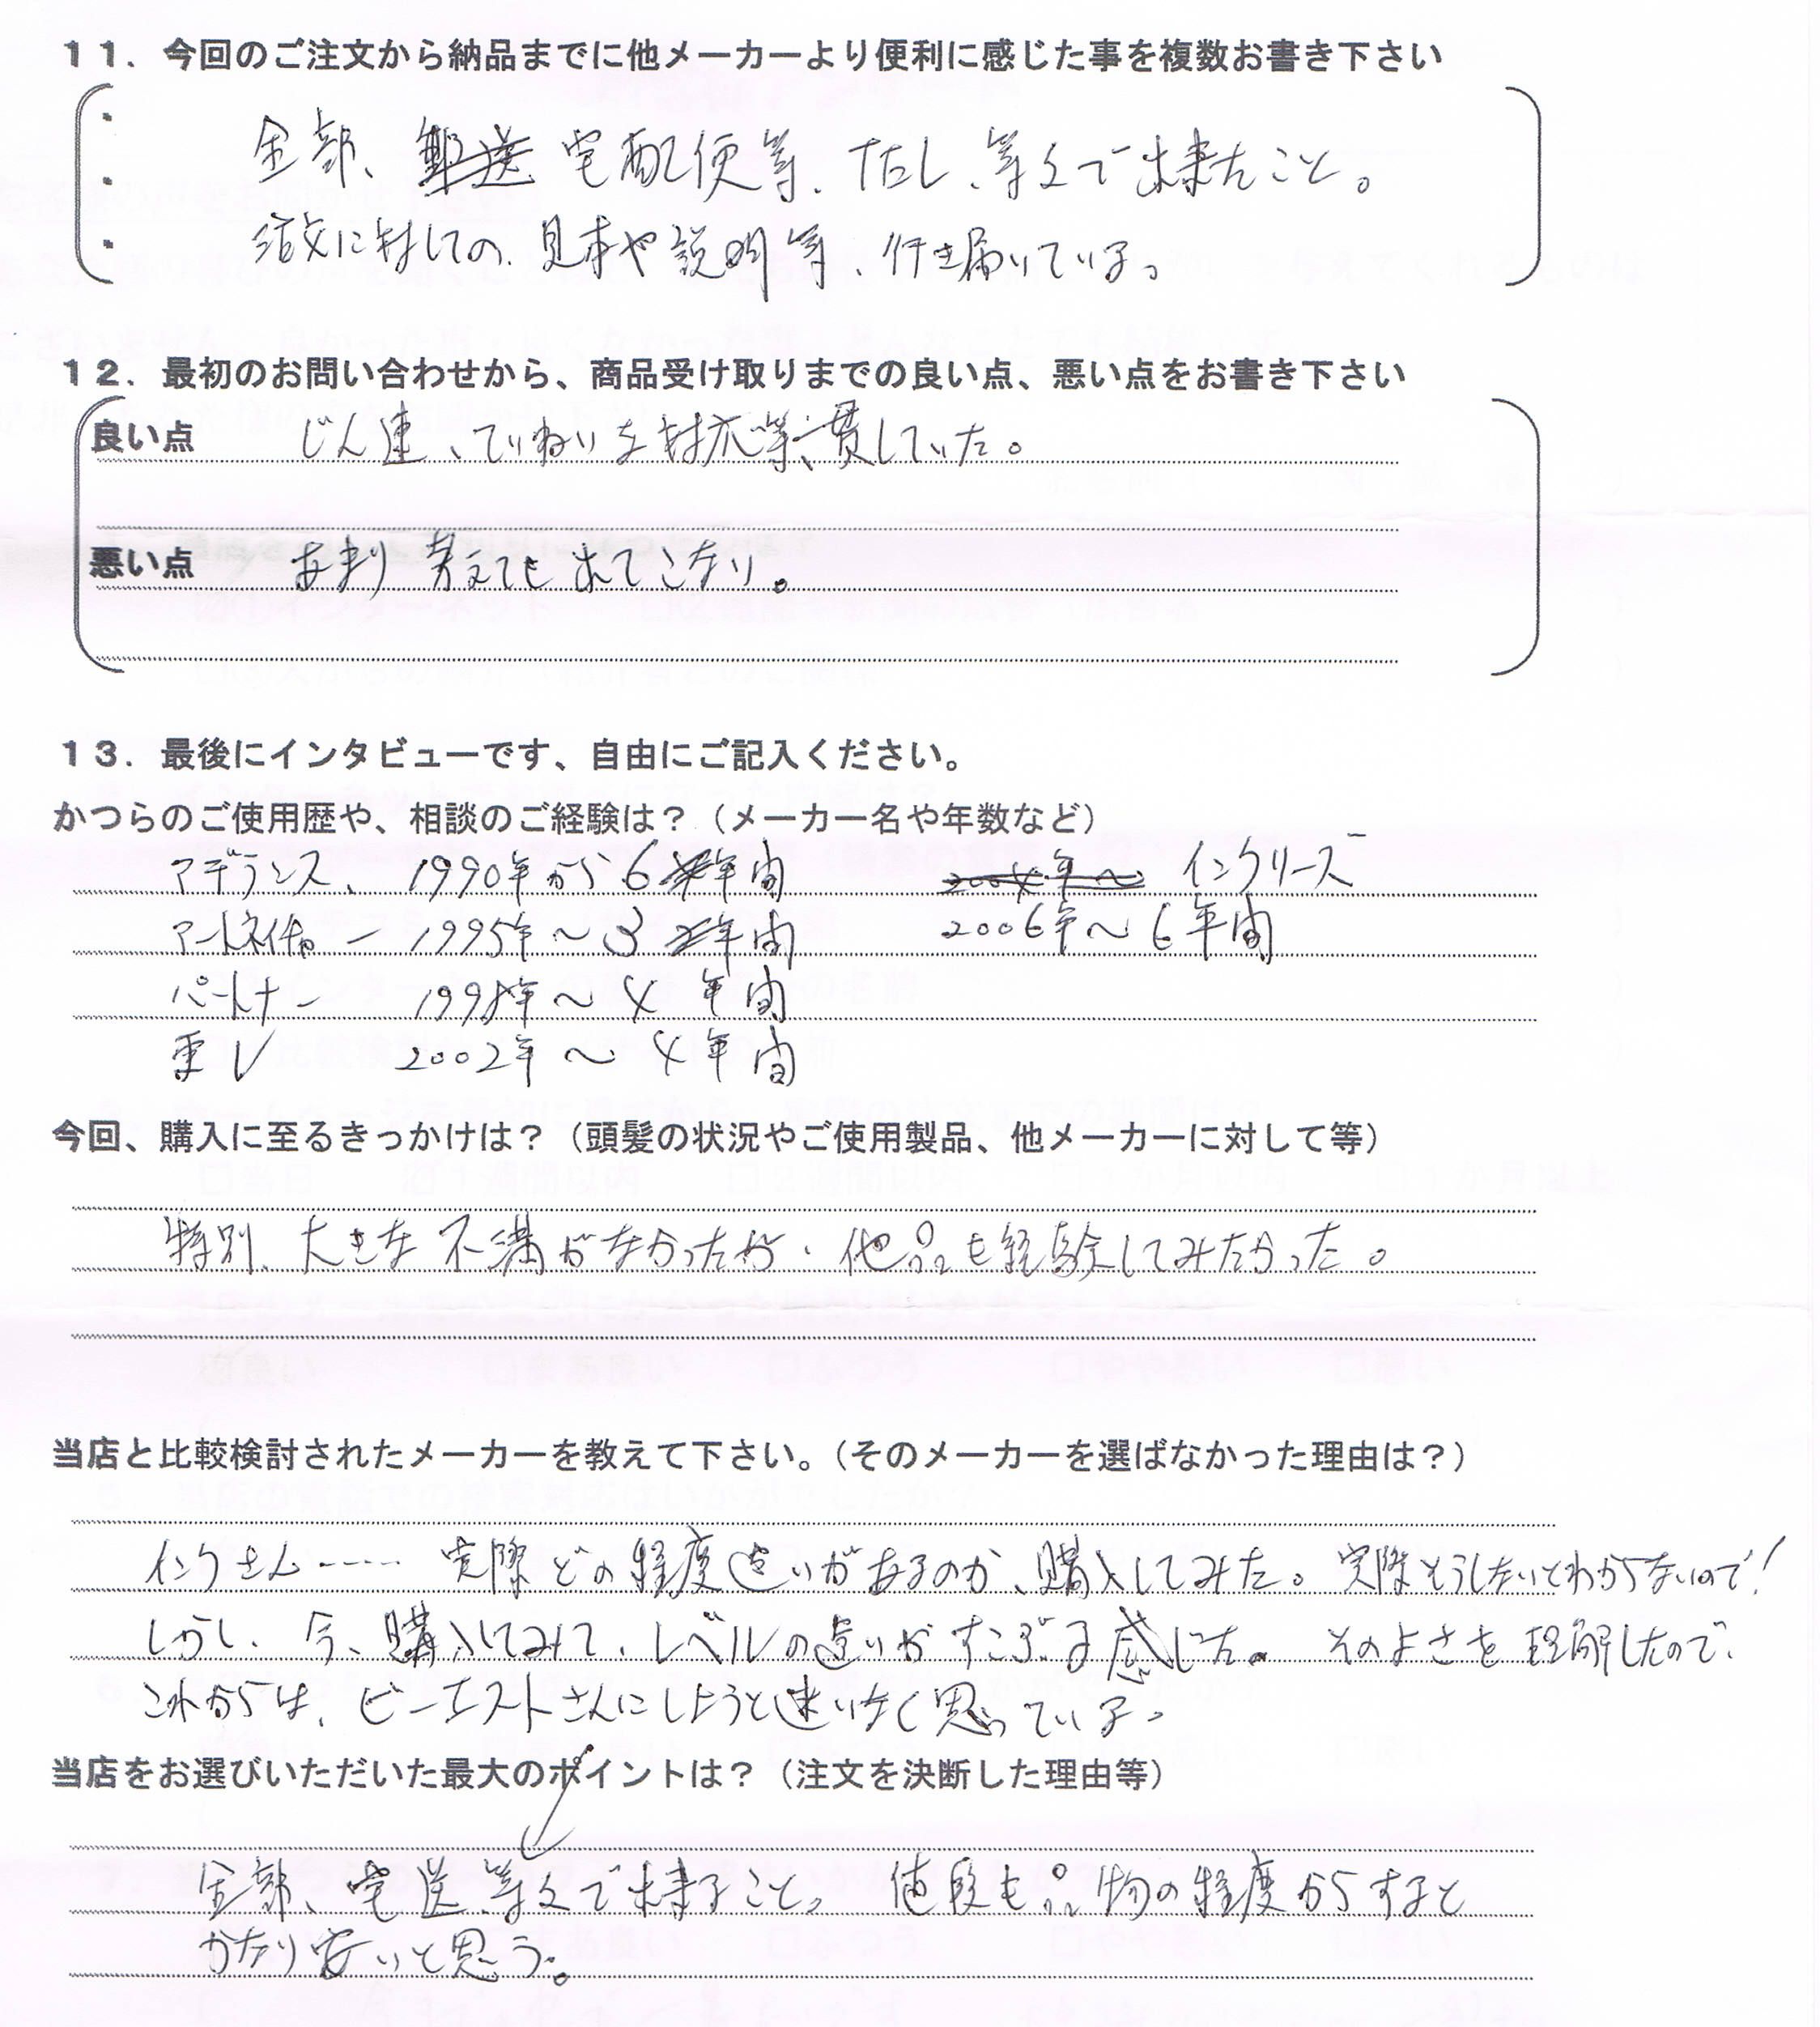 11．今回のご注文から納品までに他メーカーより便利に感じた事を複数お書き下さい
全部、宅配便等、TEL、等々で出来たこと。
注文に対しての、見本や説明等、行き届いている。
12．最初のお問い合わせから、商品受け取りまでの良い点、悪い点をお書き下さい
良い点 じん速、ていねいな対応等、一貫していた。
悪い点 あまり考えても出てこない。
13．最後にインタビューです、自由にご記入ください。
かつらのご使用歴や、相談のご経験は？（メーカー名や年数など）
アデランス、 1990年から6年間 インクリーズ
アートネイチャー 1995年～3年間 2006年～6年間
パートナー 1998年～4年間
東レ 2002年～4年間
今回、購入に至るきっかけは？（頭髪の状況やご使用製品、他メーカーに対して等）
特別、大きな不満がなかったが、他品も経験してみたかった。
当店と比較検討されたメーカーを教えて下さい。（そのメーカーを選ばなかった理由は？）
インクさん…… 実際どの程度違いがあるのか、購入してみた。実際そうしないとわからないので！
しかし、今、購入してみて、レベルの違いがすこぶる感じた。そのよさを理解したので、
これからは、ビーエストさんにしようと迷いなく思っている。
当店をお選びいただいた最大のポイントは？（注文を決断した理由等）
全部、宅送、等々で出来ること。値段も品物の程度からすると
かなり安いと思う。